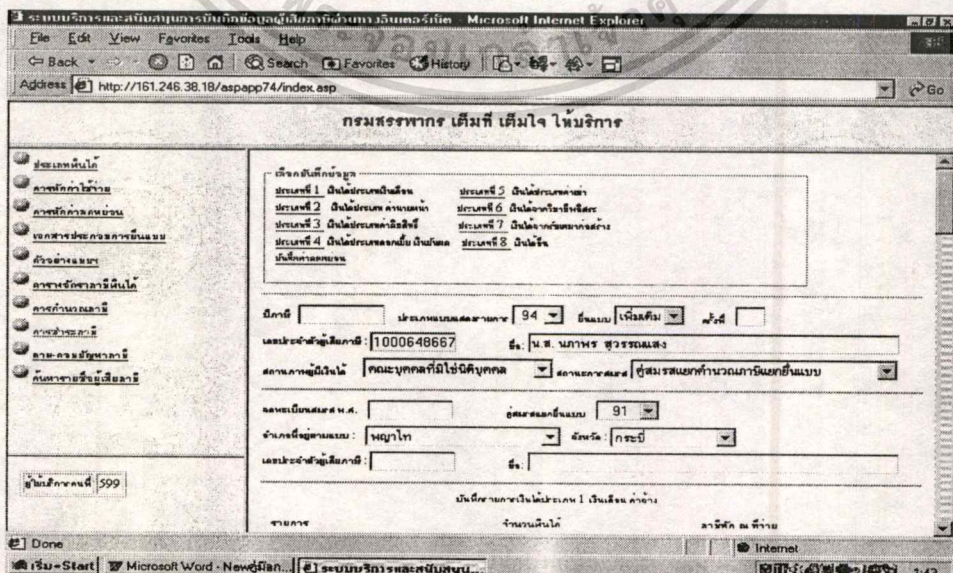 ระบบบริการและสนับสนุนการบันทึกข้อมูลผู้เสียภาษีผ่านทางอินเตอร์เน็ต - Microsoft Internet Explorer
File Edit View Favorites Tools Help
Back Search Favorites History
Address http://161.246.38.18/aspapp74/index.asp Go
กรมสรรพากร เต็มที่ เต็มใจ ให้บริการ
ประเภทเงินได้
การหักค่าใช้จ่าย
การหักค่าลดหย่อน
เอกสารประกอบการยื่นแบบ
ตัวอย่างแบบฯ
ตารางอัตราภาษีเงินได้
การคำนวณภาษี
การชำระภาษี
ถาม-ตอบปัญหาภาษี
ค้นหารายชื่อผู้เสียภาษี
ผู้ใช้บริการคนที่ 599
เลือกบันทึกข้อมูล
ประเภทที่ 1 เงินได้ประเภทเงินเดือน ประเภทที่ 5 เงินได้ประเภทค่าเช่า
ประเภทที่ 2 เงินได้ประเภท ค่านายหน้า ประเภทที่ 6 เงินได้จากวิชาชีพอิสระ
ประเภทที่ 3 เงินได้ประเภทค่าลิขสิทธิ์ ประเภทที่ 7 เงินได้จากรับเหมาก่อสร้าง
ประเภทที่ 4 เงินได้ประเภทดอกเบี้ย เงินปันผล ประเภทที่ 8 เงินได้อื่น
บันทึกค่าลดหย่อน
ปีภาษี ประเภทแบบแสดงรายการ 94 ยื่นแบบ เพิ่มเติม ครั้งที่
เลขประจำตัวผู้เสียภาษี : 1000648667 ชื่อ : น.ส. นภาพร สุวรรณแสง
สถานภาพผู้มีเงินได้ คณะบุคคลที่มิใช่นิติบุคคล สถานะการสมรส คู่สมรสแยกคำนวณภาษีแยกยื่นแบบ
จดทะเบียนสมรส พ.ศ. คู่สมรสแยกยื่นแบบ 91
อำเภอที่อยู่ตามแบบ : พญาไท จังหวัด : กระบี่
เลขประจำตัวผู้เสียภาษี : ชื่อ :
บันทึกรายการเงินได้ประเภท 1 เงินเดือน ค่าจ้าง
รายการ จำนวนเงินได้ ภาษีหัก ณ ที่จ่าย
Done Internet
เริ่ม-Start Microsoft Word - Newคู่มือก... ระบบบริการและสนับสนุน... 1:43